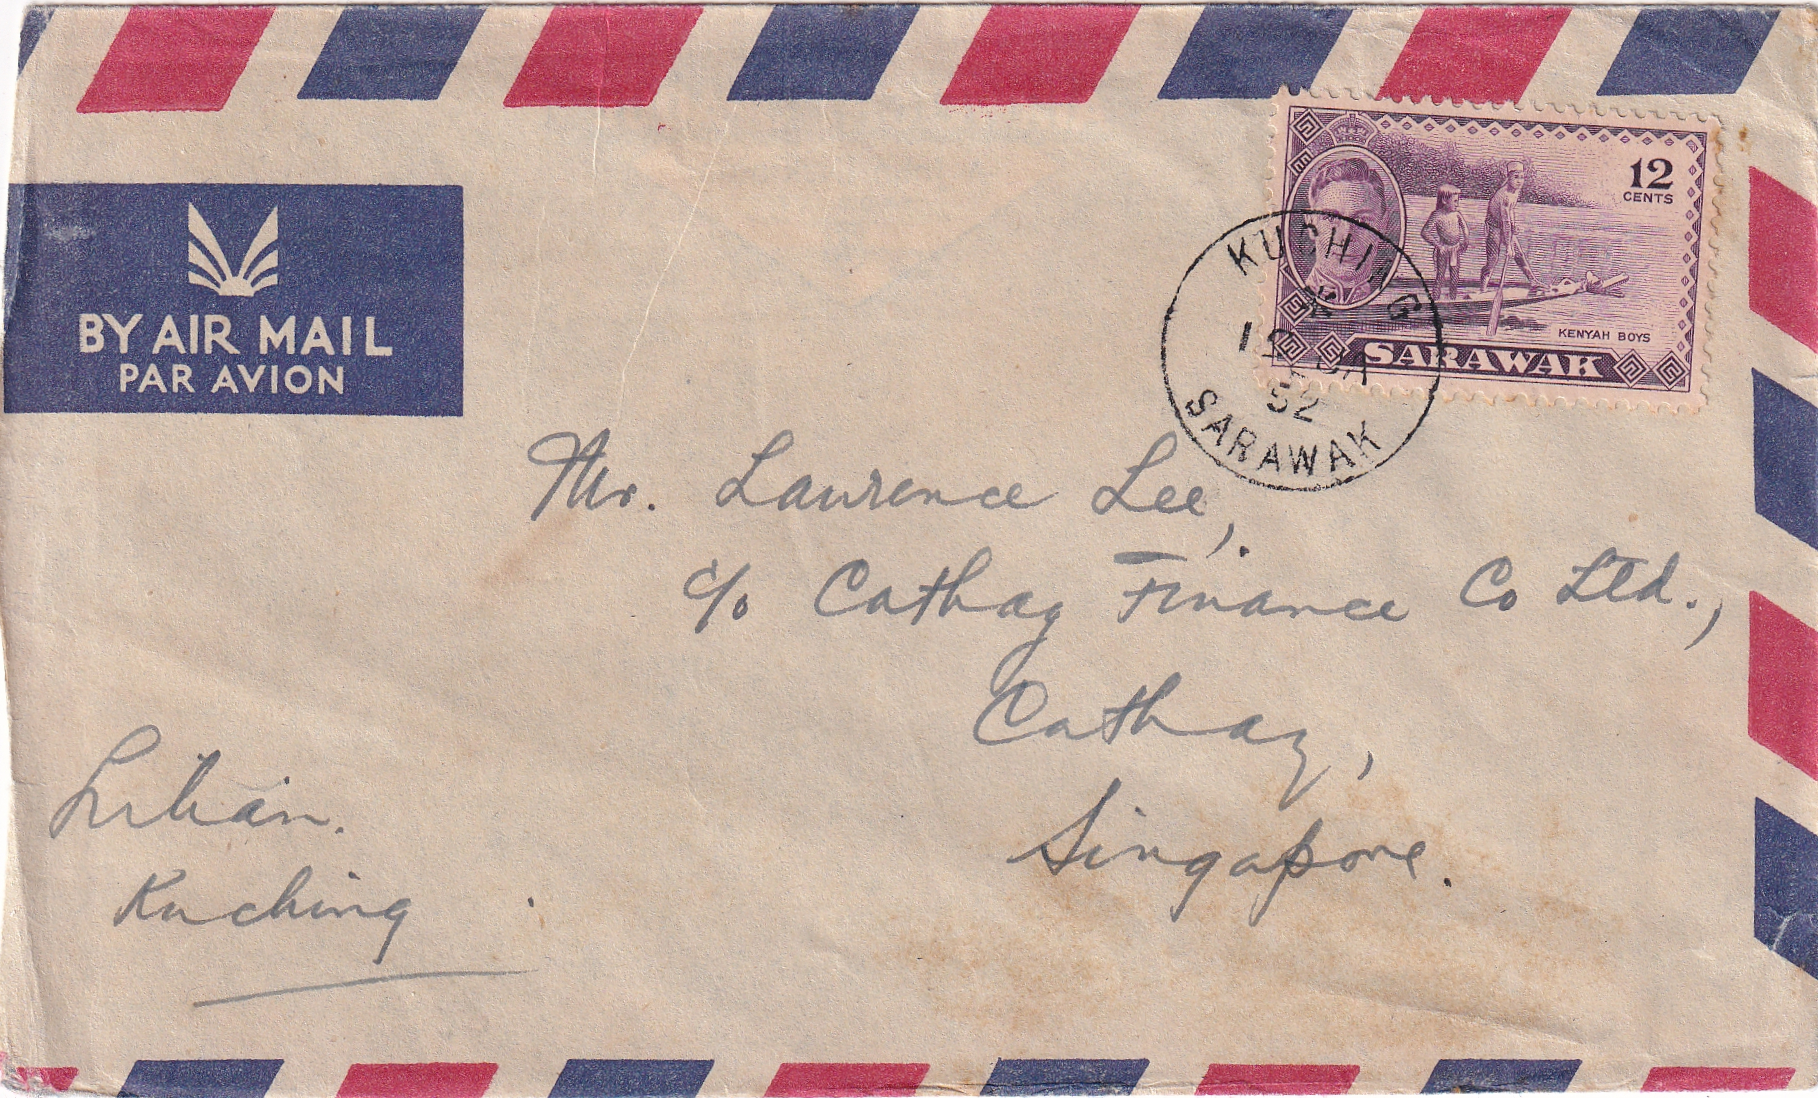 BY AIR MAIL
PAR AVION
12
CENTS
KENYAH BOYS
SARAWAK
KUCHING
52
SARAWAK
Mr. Lawrence Lee,
c/o Cathay Finance Co Ltd.,
Cathay,
Singapore.
Lilian.
Kuching